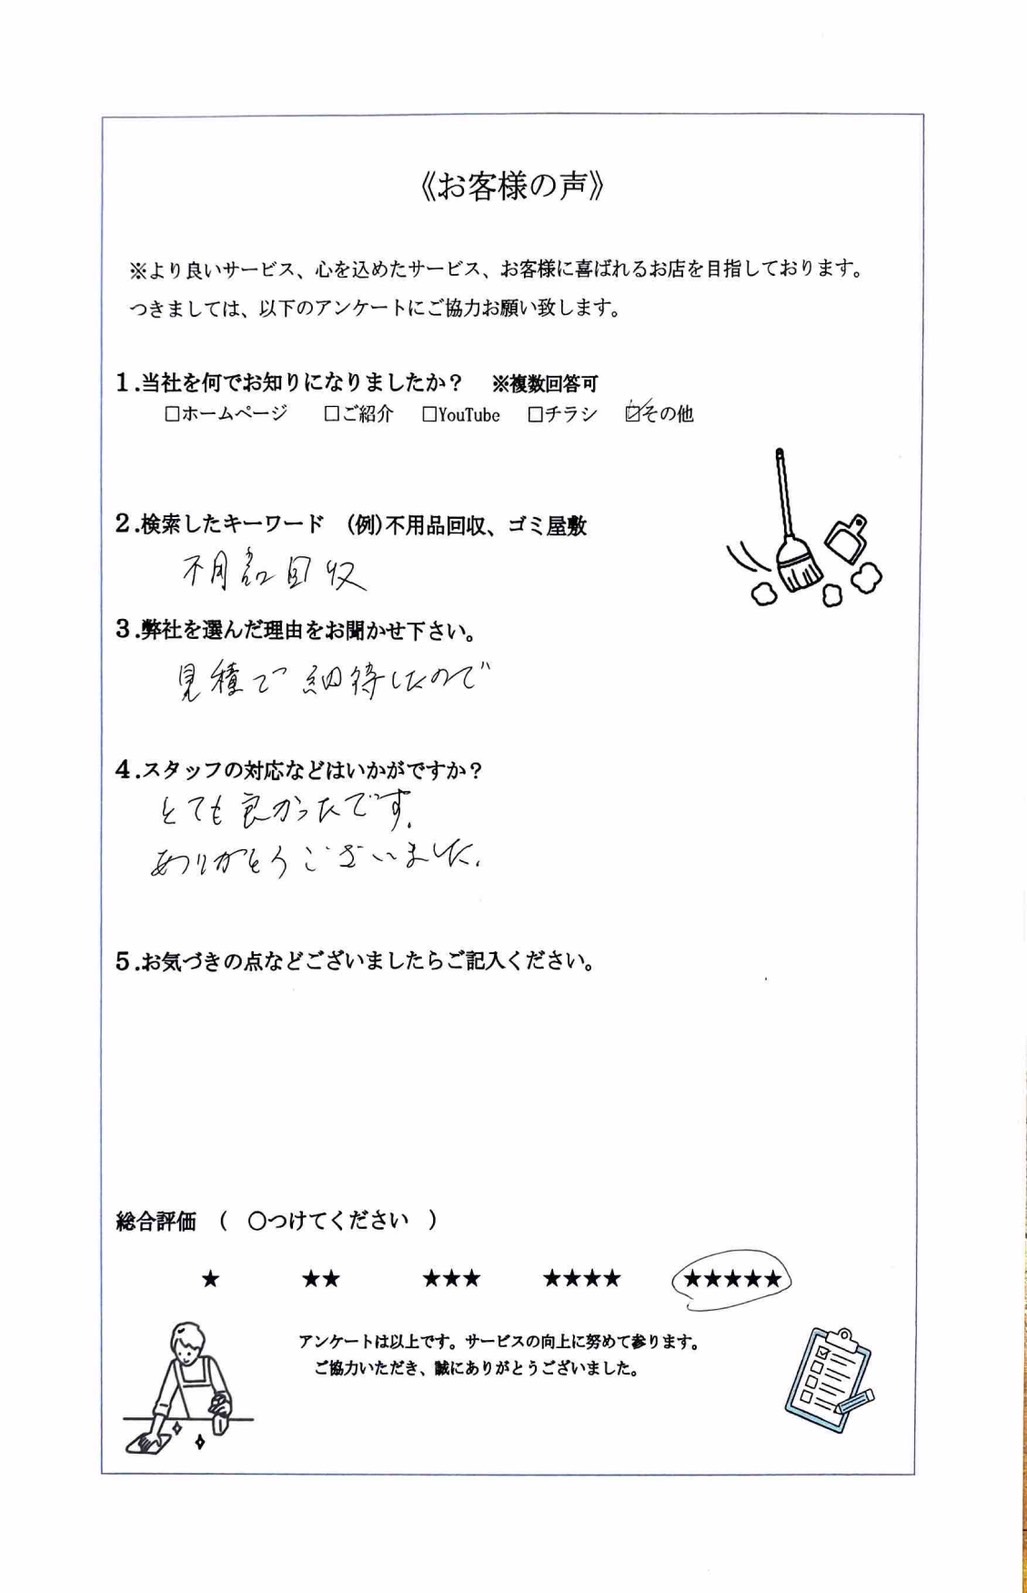 《お客様の声》
※より良いサービス、心を込めたサービス、お客様に喜ばれるお店を目指しております。
つきましては、以下のアンケートにご協力お願い致します。
1.当社を何でお知りになりましたか？　※複数回答可
□ホームページ　□ご紹介　□YouTube　□チラシ　☑その他
2.検索したキーワード　(例)不用品回収、ゴミ屋敷
不用品回収
3.弊社を選んだ理由をお聞かせ下さい。
見積で納得したので
4.スタッフの対応などはいかがですか？
とても良かったです。
ありがとうございました。
5.お気づきの点などございましたらご記入ください。
総合評価　(　〇つけてください　)
★　★★　★★★　★★★★　★★★★★
アンケートは以上です。サービスの向上に努めて参ります。
ご協力いただき、誠にありがとうございました。